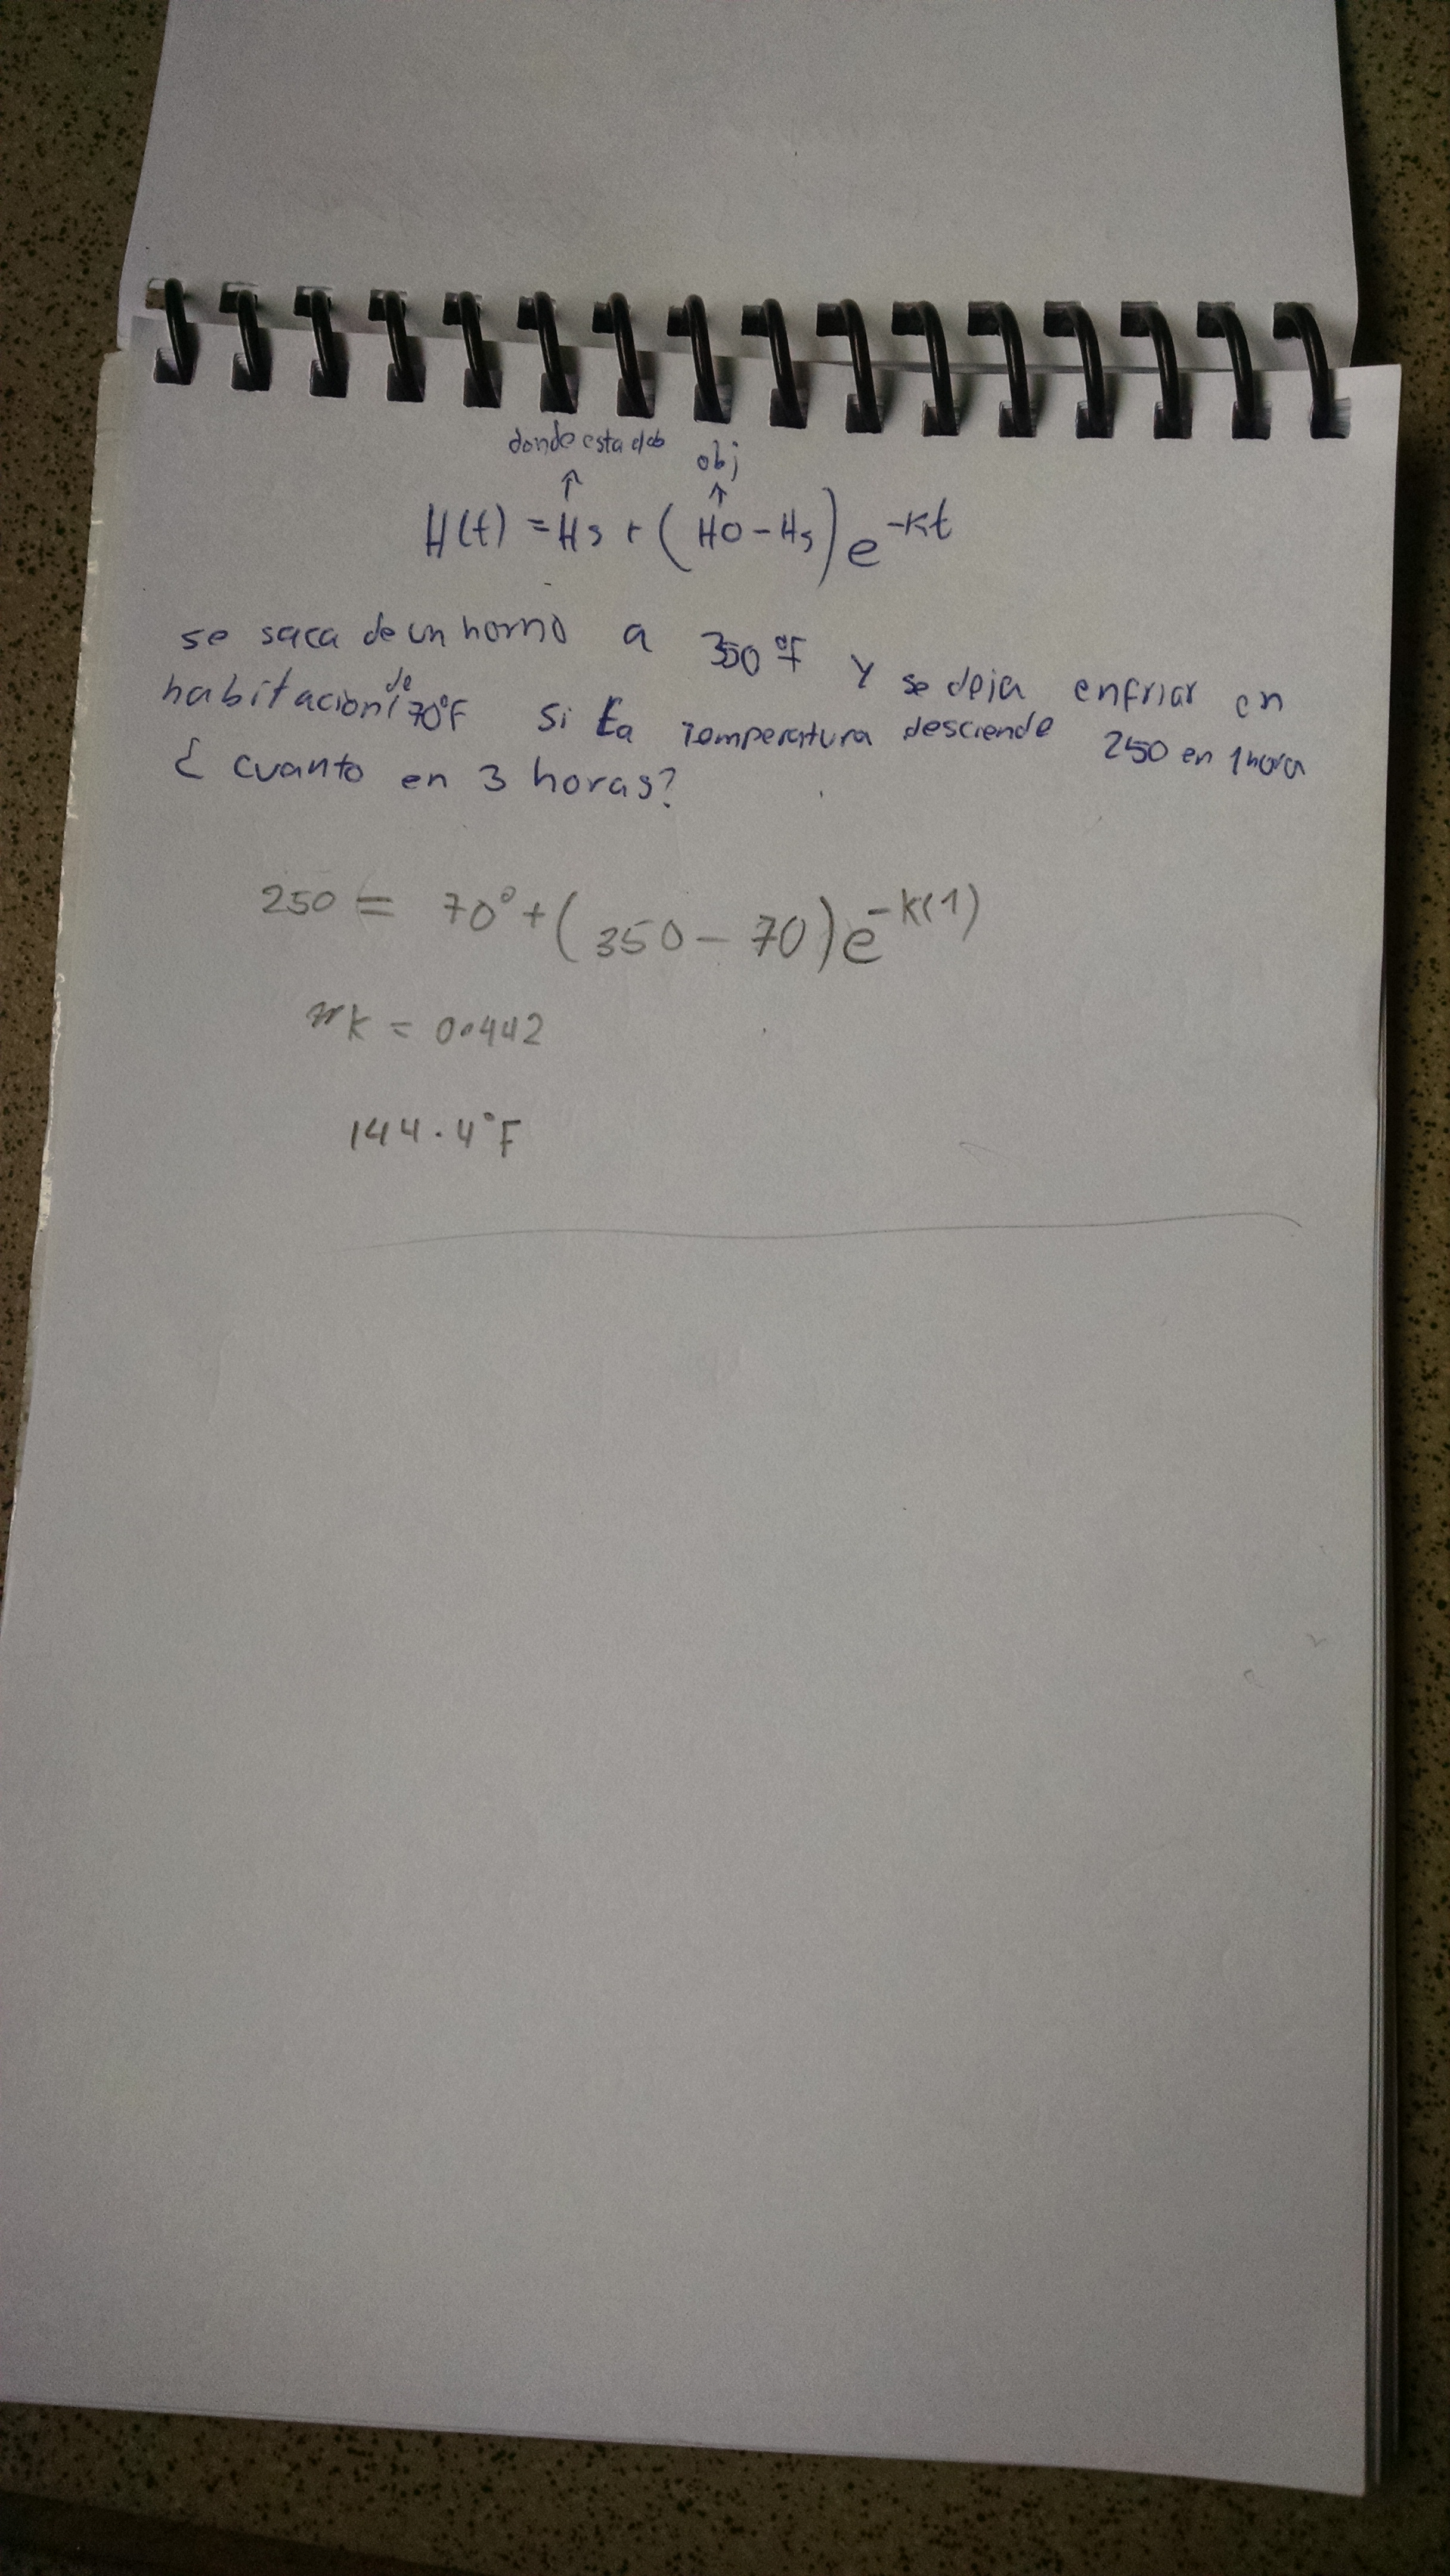 donde esta
obj
↑ ↑
H(t) = Hs + (H0 - Hs) e^-kt
se saca de un horno a 350 °F y se deja enfriar en
habitacion de 70°F si La Temperatura desciende 250 en 1 hora
¿ cuanto en 3 horas?
250 = 70° + (350 - 70) e^-k(1)
k = 0.442
144.4°F